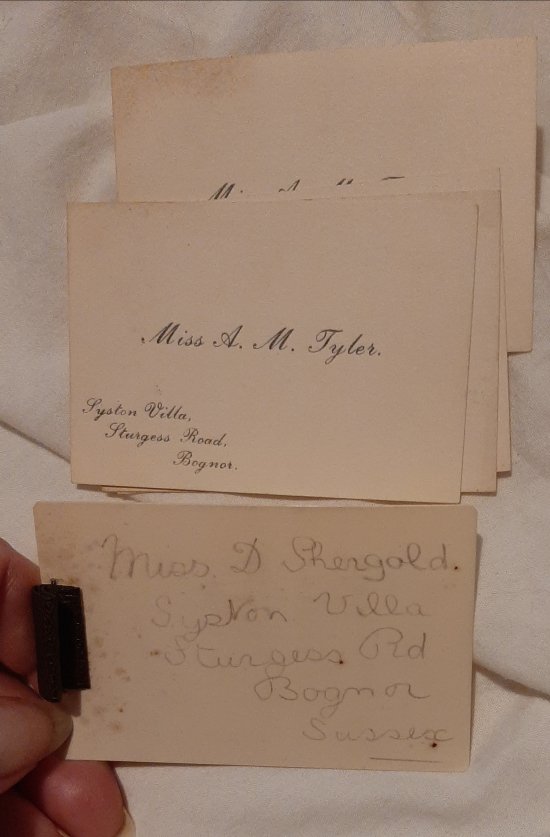 Miss A. M. Tyler.
Syston Villa,
Sturgess Road,
Bognor.
Miss. D Shergold.
Syston Villa
Sturgess Rd
Bognor
Sussex